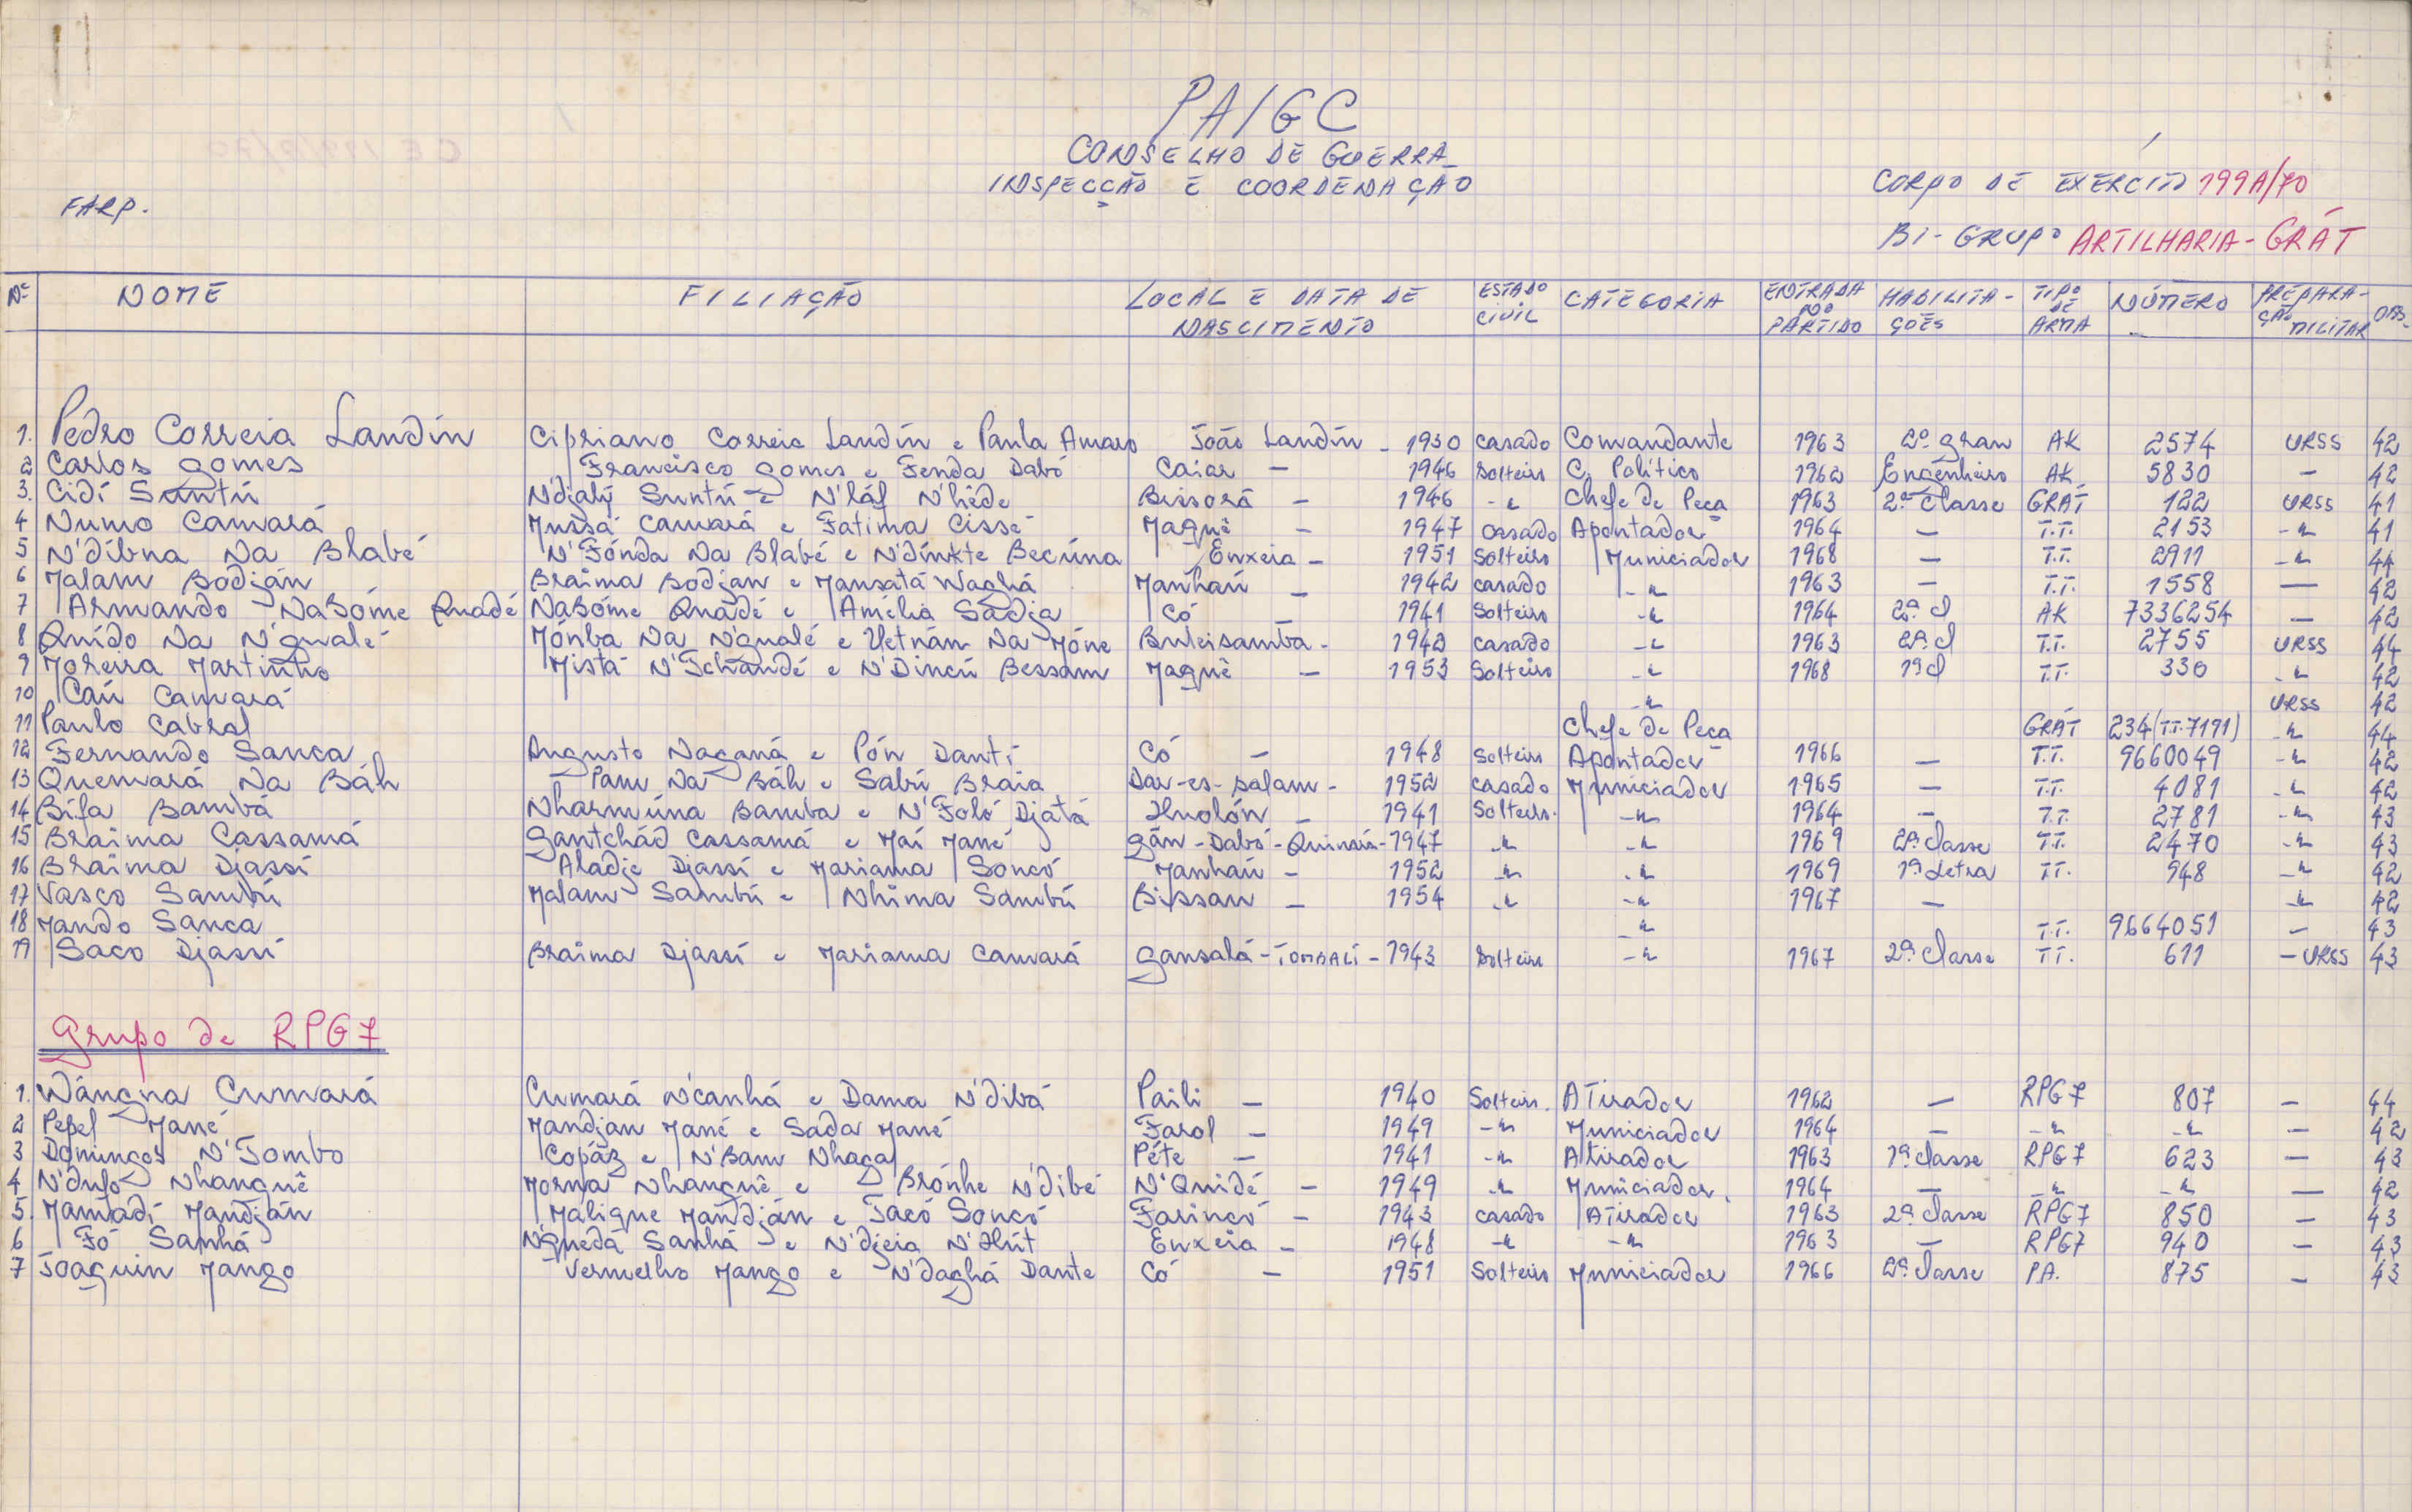 PAIGC
CONSELHO DE GUERRA
INSPECÇÃO E COORDENAÇÃO
FARP.
CORPO DE EXÉRCITO 199A/70
BI-GRUPO ARTILHARIA-GRÁT
Nº NOME FILIAÇÃO LOCAL E DATA DE NASCIMENTO ESTADO CIVIL CATEGORIA ENTRADA NO PARTIDO HABILITAÇÕES TIPO DE ARMA NÚMERO PREPARAÇÃO MILITAR OBS.
1. Pedro Correia Landin Cipriano Correia Landin e Paula Amaro João Landin - 1930 casado Comandante 1963 2º grau AK 2574 URSS 42
2 Carlos Gomes Francisco Gomes e Fenda Dabó Caiar - 1946 Solteiro C. Político 1962 Engenheiro AK 5830 - 42
3. Cidí Suntú N'djalý Suntú e N'láf N'hède Bissorá - 1946 -"- Chefe de Peça 1963 2ª Classe GRÁT 122 URSS 41
4 Numo Camará Mussá Camará e Fatima Cissé Maqué - 1947 casado Apontador 1964 - T.T. 2153 -"- 41
5 N'díbna Na Blabé N'Fónda Na Blabé e N'dínkte Becúna Enxeia - 1951 Solteiro Municiador 1968 - T.T. 2911 -"- 44
6 Malam Bodján Braima Bodjan e Mansatá Waghá Manhaú - 1942 casado -"- 1963 - T.T. 1558 - 42
7 Armando NaBóme Quadé NaBóme Quadé e Amélia Sadja Có - 1941 Solteiro -"- 1964 2ª cl AK 7336254 - 42
8 Quído Na N'gualé Mónba Na N'gualé e Uetnám Na Móne Buleisamba - 1942 casado -"- 1963 2ª cl T.T. 2755 URSS 44
9 Moreira Martinho Mistá N'Tchandé e N'Dincú Bessam Maqué - 1953 Solteiro -"- 1968 1ª cl T.T. 330 -"- 42
10 Caú Camará -"- URSS 42
11 Paulo Cabral Chefe de Peça GRÁT 234 (T.T. 7191) -"- 44
12 Fernando Sanca Augusto Naganá e Pón Dantí Có - 1948 Solteiro Apontador 1966 - T.T. 9660049 -"- 42
13 Quemará Na Báh Panu Na Báh e Sabú Braia Dar-es-salam - 1952 casado Municiador 1965 - T.T. 4081 -"- 42
14 Bífa Bambá Nharmúna Bamba e N'Foló Djatá - 1941 Solteiro. -"- 1964 - T.T. 2781 -"- 43
15 Braima Cassamá Gantchád Cassamá e Maí Mané Gán-Dabó-Quinará-1947 -"- -"- 1969 2ª Classe T.T. 2470 -"- 43
16 Braima Djassí Aladje Djassí e Mariama Soncó Manhaú - 1952 -"- -"- 1969 1ª Letra T.T. 948 -"- 42
17 Vasco Sambú Malam Sambú e Nhima Sambú Bissau - 1954 -"- -"- 1967 - -"- 42
18 Mando Sanca -"- T.T. 9664051 - 43
19 Saco Djassí Braima Djassí e Mariama Camará Gansalá-TOMBALÍ-1943 Solteiro -"- 1967 2ª Classe T.T. 611 - URSS 43
Grupo de RPG7
1. Wángna Cumará Cumará N'canhá e Dama N'dibá Paili - 1940 Solteiro. ATirador 1962 - RPG7 807 - 44
2 Pepel Mané Mandjan Mané e Sada Mané Farol - 1949 -"- Municiador 1964 - -"- -"- - 42
3 Domingos N'Tombo Copáz e N'Bam Nhaga Péte - 1941 -"- Atirador 1963 1ª classe RPG7 623 - 43
4 N'dufo Nhanquê Morna Nhanquê e Brónhe N'dibé N'Quidé - 1949 -"- Municiador. 1964 - -"- -"- - 42
5. Mamadí Mandján Malique Mandján e Tacó Soncó Farincó - 1943 casado ATirador 1963 2ª Classe RPG7 850 - 43
6 Fó Sanhá N'gueda Sanhá e N'djeia N'Hút Enxeia - 1948 -"- -"- 1963 - RPG7 940 - 43
7 Joaquin Mango Vermelho Mango e N'daghá Dante Có - 1951 Solteiro Municiador 1966 2ª Classe PA. 875 - 43